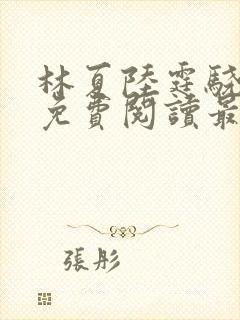 林夏陸霆驍
免費閱讀最
張彤